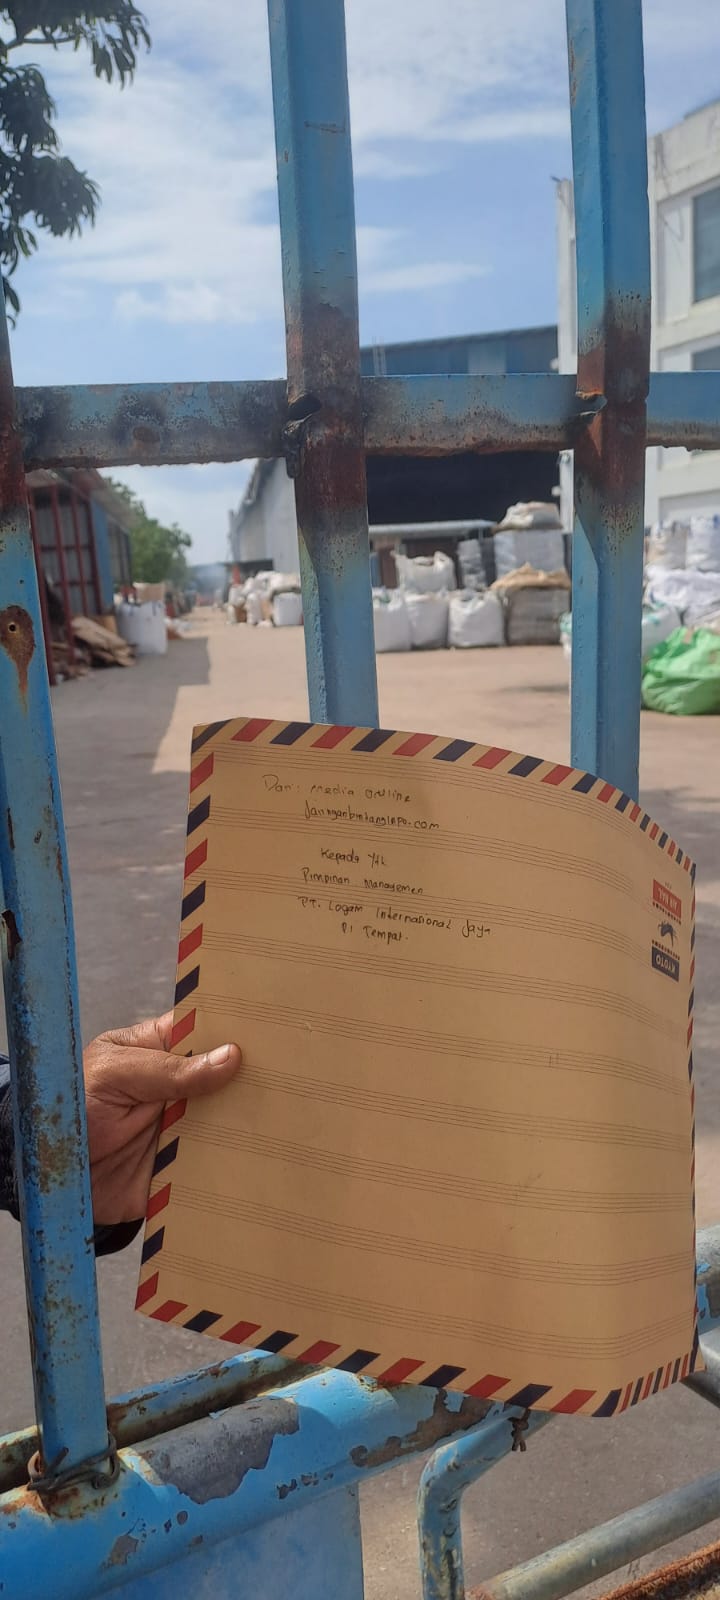 Dari: media online
jaringanbintanginpo.com
Kepada Yth
Pimpinan Managemen
PT. Logam Internasional Jaya
Di Tempat.
AIR MAIL
KYOTO